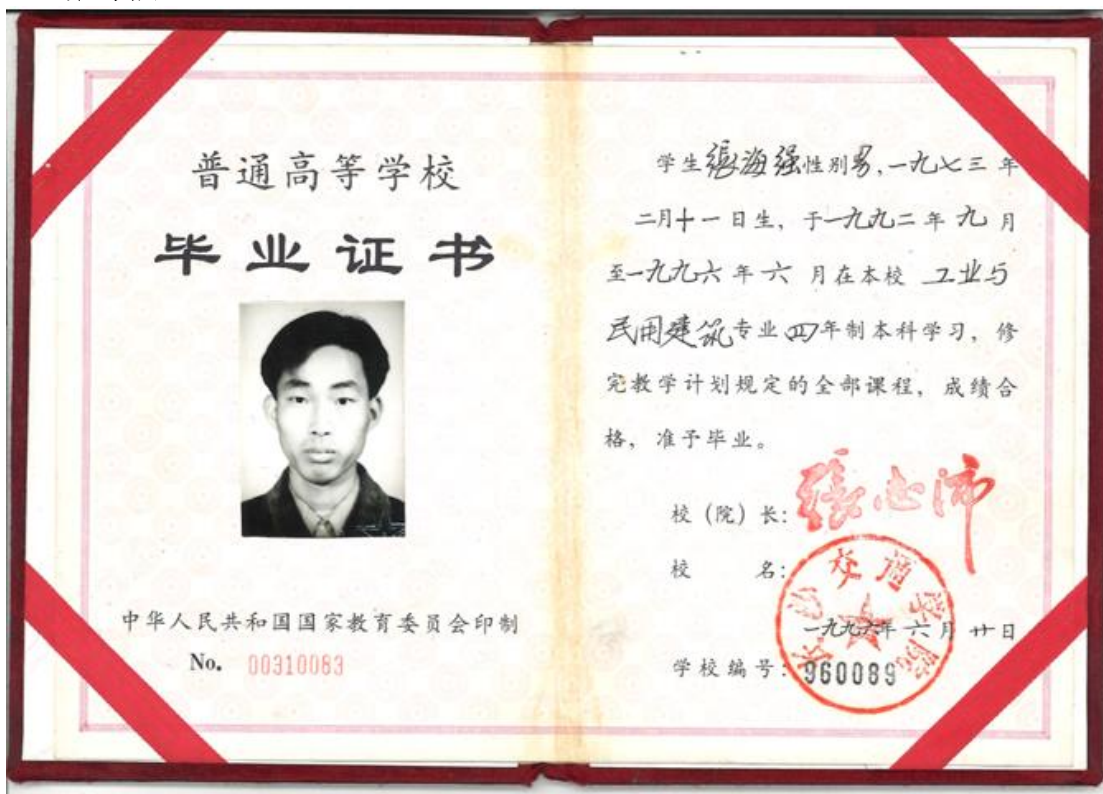 普通高等学校
毕业证书
中华人民共和国国家教育委员会印制
No. 00310083
学生張海强性别男,一九七三年
二月十一日生,于一九九二年九月
至一九九六年六月在本校 工业与
民用建筑专业四年制本科学习,修
完教学计划规定的全部课程,成绩合
格,准予毕业。
校(院)长:張志沛
校 名:
长沙交通学院
一九九六年六月廿日
学校编号:960089